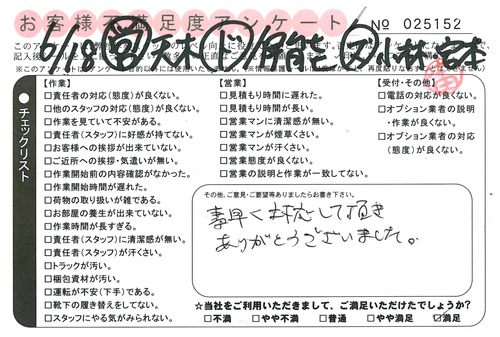 お客様不満足度アンケート
No 025152
チェックリスト
【作業】
責任者の対応(態度)が良くない。
他のスタッフの対応(態度)が良くない。
作業を見ていて不安がある。
責任者(スタッフ)に好感が持てない。
お客様への挨拶が出来ていない。
ご近所への挨拶・気遣いが無い。
作業開始前の内容確認がなかった。
作業開始時間が遅れた。
荷物の取り扱いが雑である。
お部屋の養生が出来ていない。
作業時間が長すぎる。
責任者(スタッフ)に清潔感が無い。
責任者(スタッフ)が汗くさい。
トラックが汚い。
梱包資材が汚い。
運転が不安(下手)である。
靴下の履き替えをしてない。
スタッフにやる気がみられない。
【営業】
見積もり時間に遅れた。
見積もり時間が長い。
営業マンに清潔感が無い。
営業マンが煙草くさい。
営業マンが汗くさい。
営業態度が良くない。
営業の説明と作業が一致してない。
【受付・その他】
電話の対応が良くない。
オプション業者の説明
・作業が良くない。
オプション業者の対応
(態度)が良くない。
その他、ご意見・ご要望等ありましたらお書き下さい。
事早く対応して頂き
ありがとうございました。
☆当社をご利用いただきまして、ご満足いただけたでしょうか?
不満 やや不満 普通 やや満足 満足